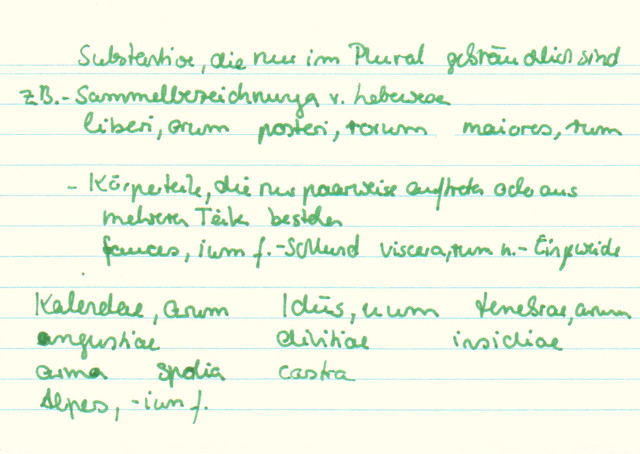 Substantive, die nur im Plural gebräuchlich sind
z.B. - Sammelbezeichnung v. Lebewese
liberi, orum posteri, rorum maiores, rum
- Körperteile, die nur paarweise auftreten oder aus
mehreren Teilen bestehen
fauces, ium f. - Schlund viscera, rum n. - Eingeweide
Kalendae, arum Idūs, uum tenebrae, arum
angustiae divitiae insidiae
arma spolia castra
Alpes, -ium f.